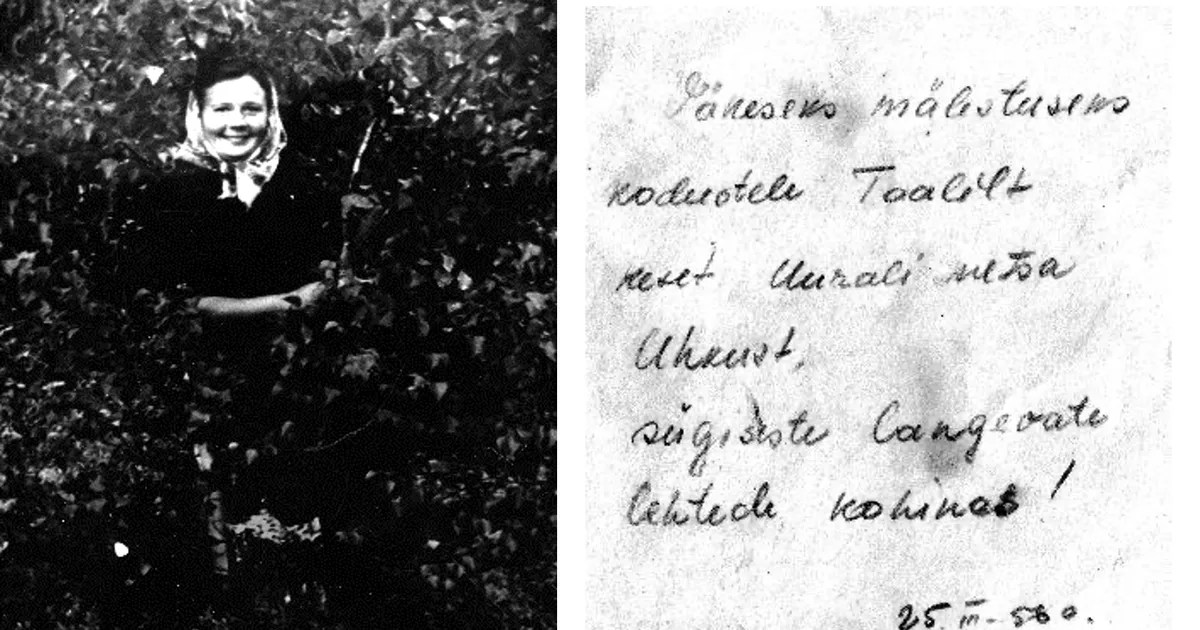 Jäneseks mälestuseks
kodustele Taalilt
keset Uurali metsa
Uhkust,
sügiseste langevate
lehtede kohinas!
25. III - 58 a.